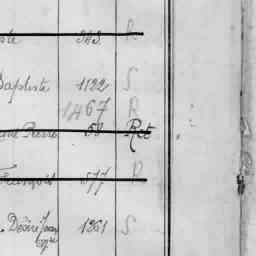 ste 383 R
Baptiste 1122 S
1467 R
Pierre 58 Ret
François 577 R
Désiré Jean 1261 S